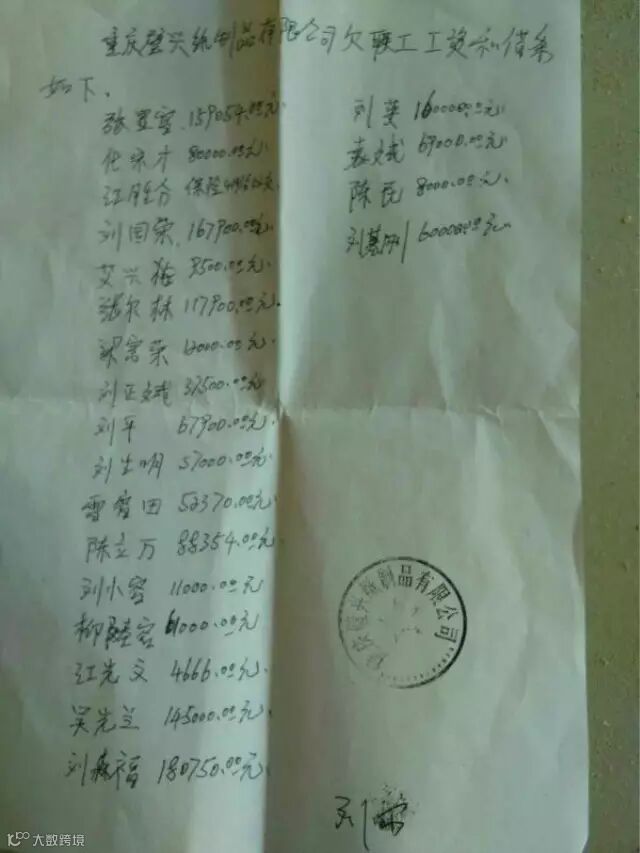 重庆璧兴纸制品有限公司欠职工工资和借条
如下.
张显容 159054.00元
80000.00元
江月分 保险
刘国荣 167900.00元
艾兴 3500.00元
张尔林 117900.00元
梁富荣 12000.00元
刘正斌 37500.00元
刘平 67900.00元
刘生明 57000.00元
雷雪田 52370.00元
陈立万 88354.00元
刘小容 11000.00元
柳 容 41000.00元
江先文 4666.00元
吴先兰 145000.00元
刘森福 180750.00元
刘英 160000.00元
袁斌 69000.00元
陈民 8000.00元
刘基刚 60000.00元
重庆璧兴纸制品有限公司
刘荣
大数跨境